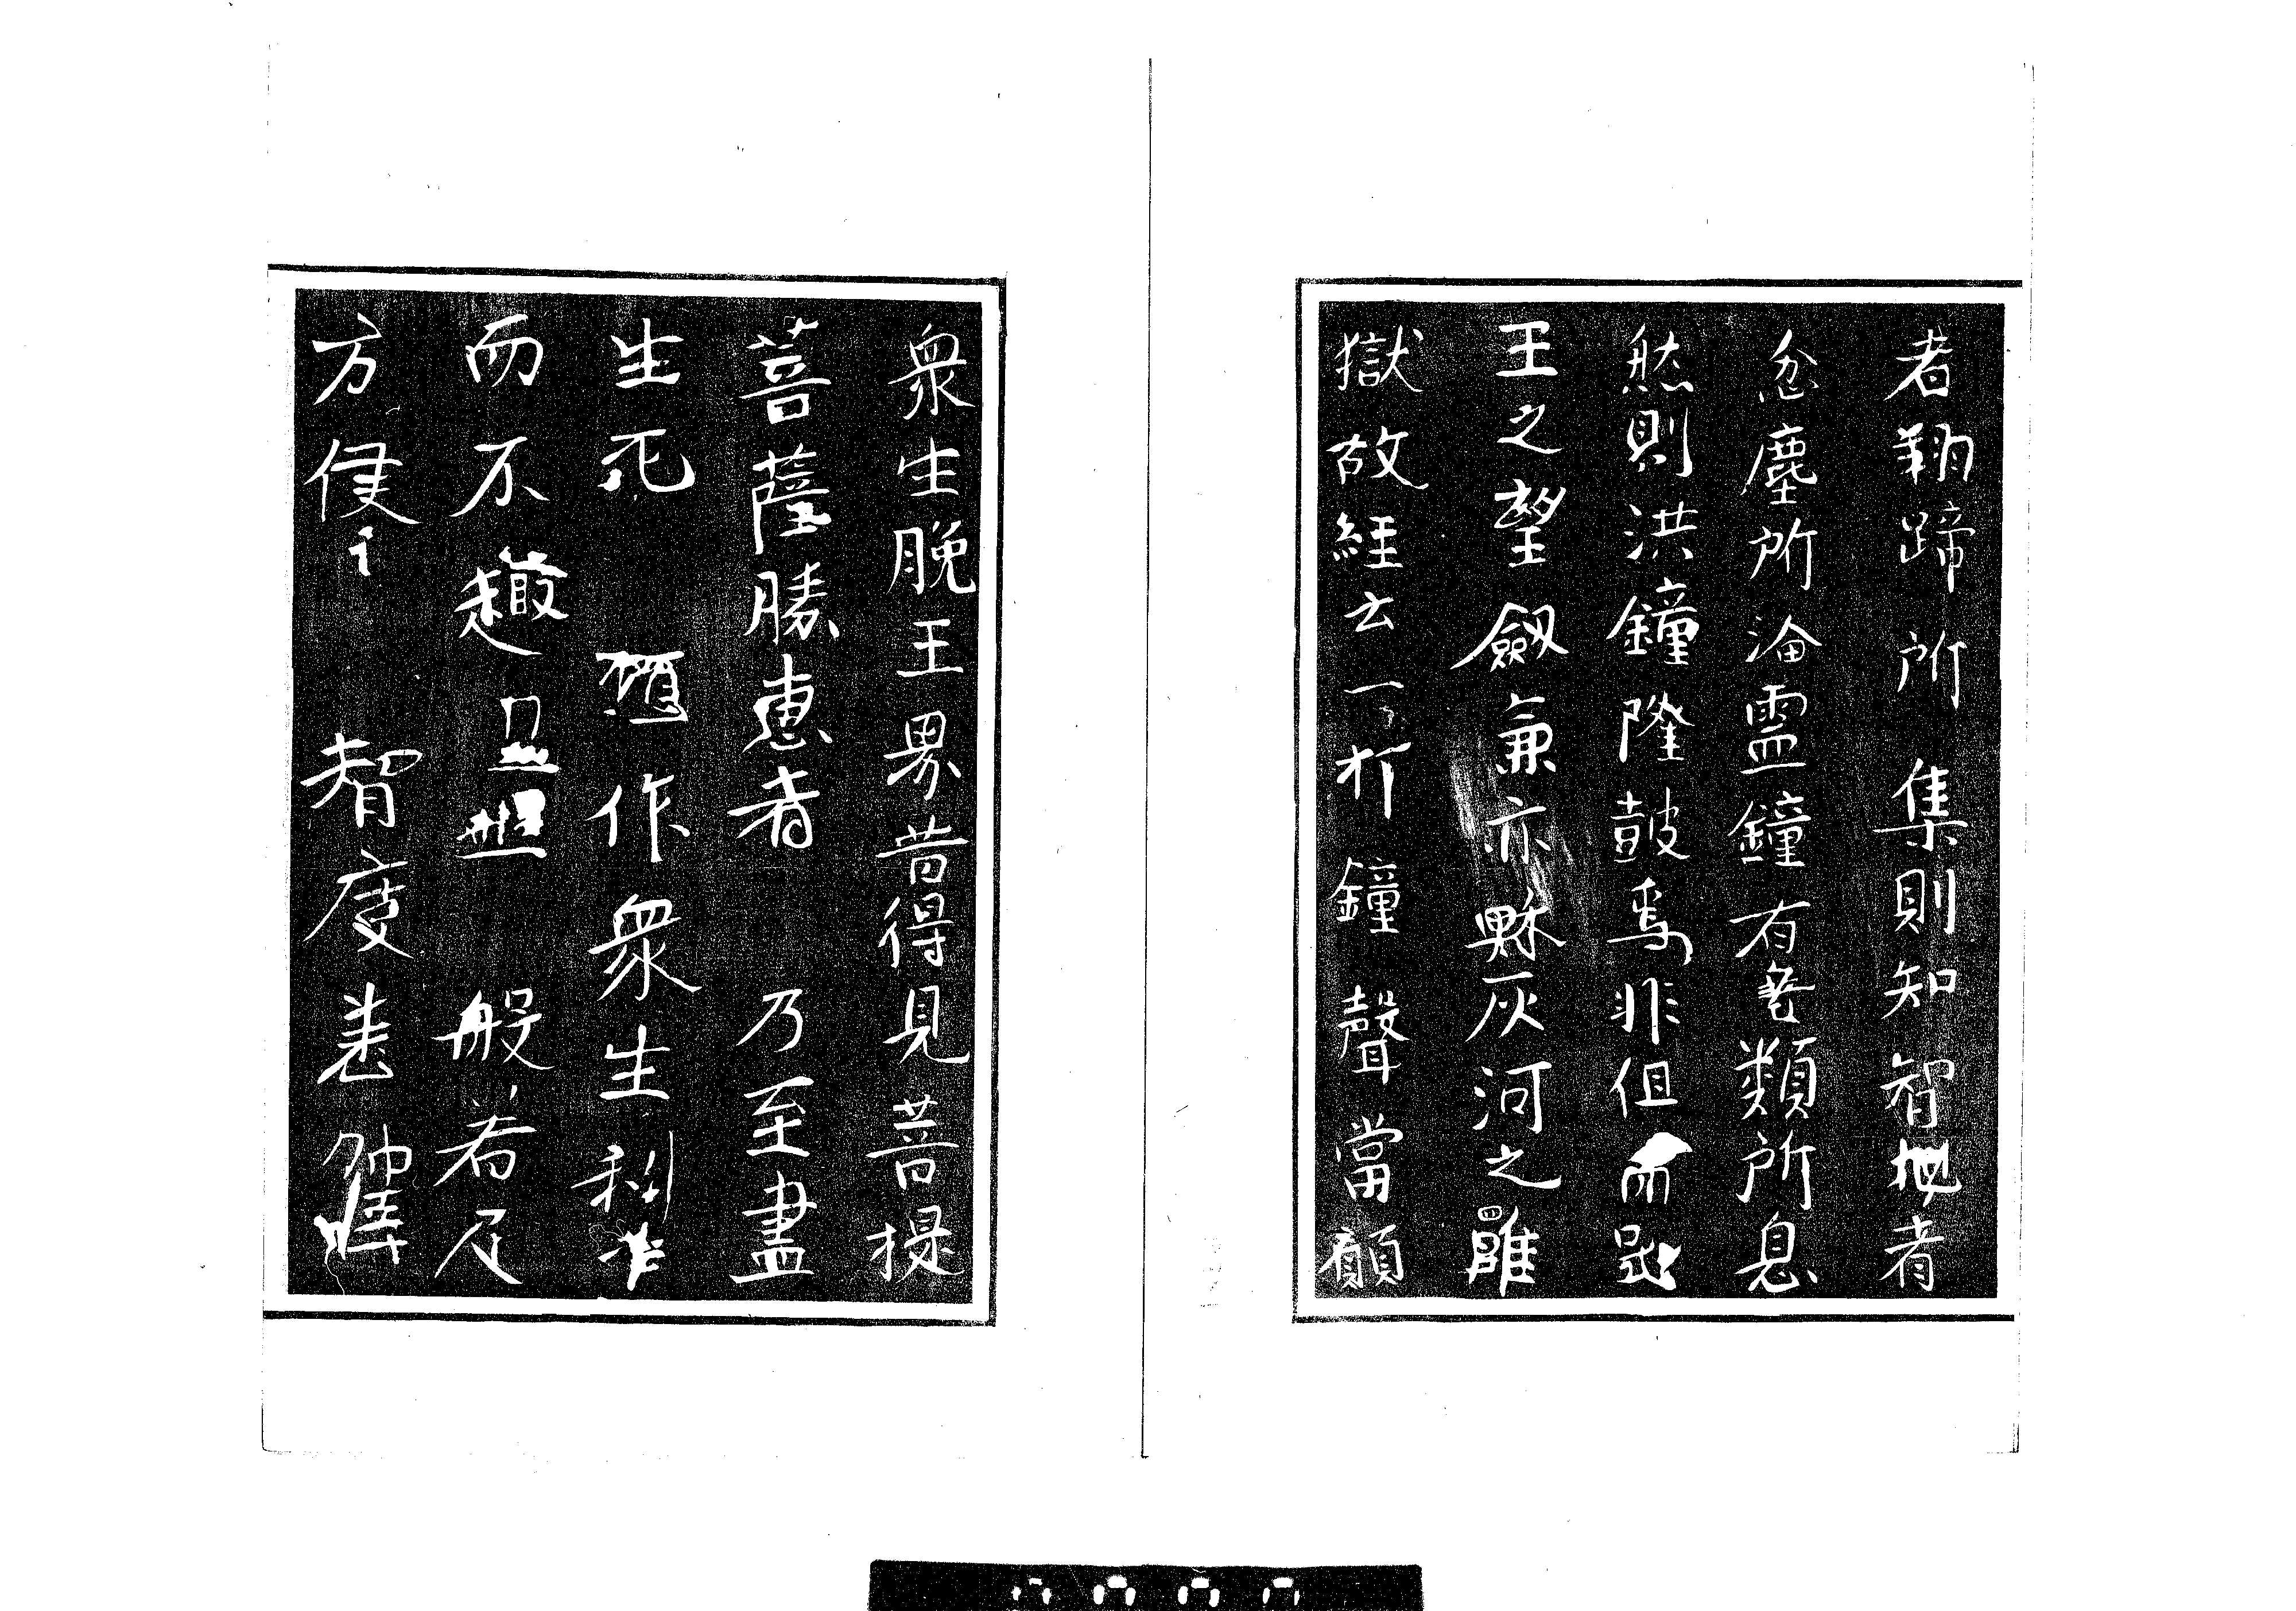 者翔蹄所集則知智地者
忿塵所淪靈鐘有毒類所息
然則洪鐘隆鼓焉非但而
王之聖劔兼亦灰河之
獄故經云一打鐘聲當願
衆生脫王界苦得見菩提
菩薩勝惠者乃至盡
生死作衆生利
而不趣般若尼
方便智度悉